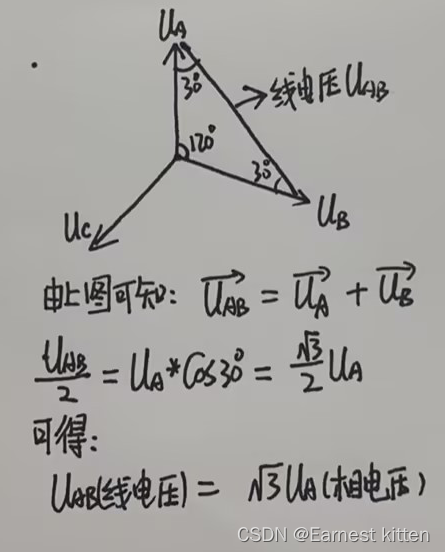 UA
30°
线电压UAB
120°
30°
UB
UC
由上图可知: UAB = UA + UB
UAB/2 = UA*Cos30° = √3/2 UA
可得:
UAB(线电压) = √3UA(相电压)
CSDN @Earnest kitten